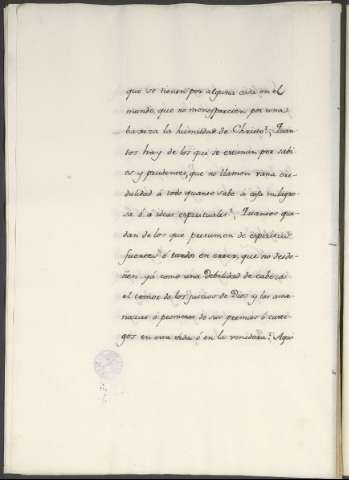 que se tienen por alguna cosa en el
mundo, que no menosprecien por una
baxeza la humildad de Christo? Quan-
tos hay de los que se estiman por sabi
os y prudentes, que no llamen vana cre-
dulidad á todo quanto sabe á cosa milagro-
sa ó á ideas espirituales? Quantos que-
dan de los que presumen de espiritus
fuertes ó tardos en creer, que no desde-
ñen yá como una debilidad de cabeza
el temor de los juicios de Dios y las ame-
nazas ó promesas de sus premios ó casti-
gos en esta vida ó en la venidera?